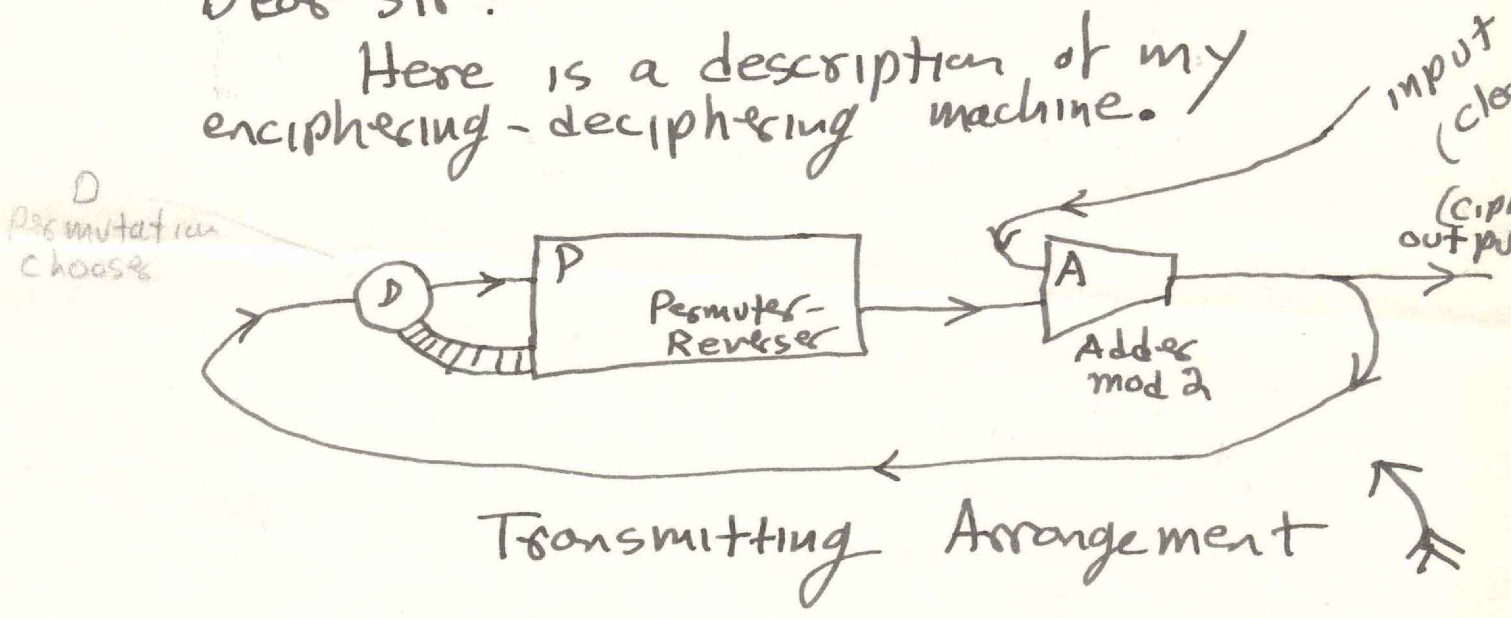 Dear Sir:
Here is a description of my
enciphering-deciphering machine.
input
D
Permutation
Chooser
D
P
Permuter-
Reverser
A
output
Adder
mod 2
Transmitting Arrangement